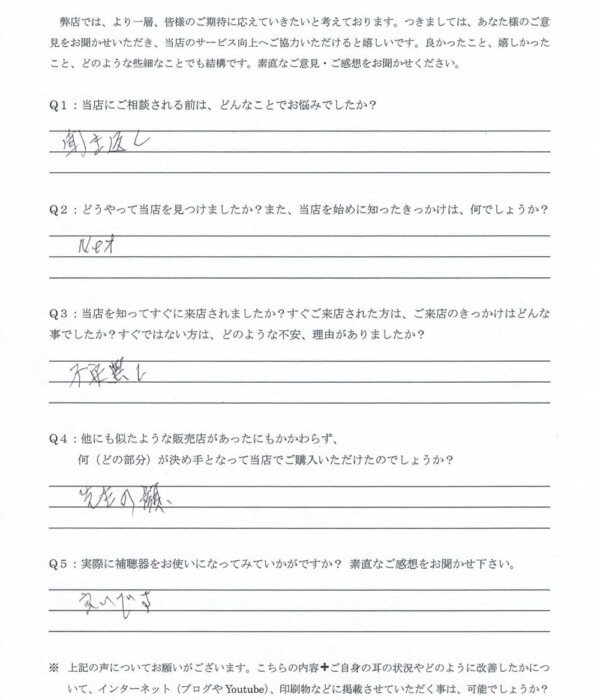 弊店では、より一層、皆様のご期待に応えていきたいと考えております。つきましては、あなた様のご意
見をお聞かせいただき、当店のサービス向上へご協力いただけると嬉しいです。良かったこと、嬉しかった
こと、どのような些細なことでも結構です。素直なご意見・ご感想をお聞かせください。
Q1：当店にご相談される前は、どんなことでお悩みでしたか？
聞き返し
Q2：どうやって当店を見つけましたか？また、当店を始めに知ったきっかけは、何でしょうか？
Net
Q3：当店を知ってすぐに来店されましたか？すぐご来店された方は、ご来店のきっかけはどんな
事でしたか？すぐではない方は、どのような不安、理由がありましたか？
無し
Q4：他にも似たような販売店があったにもかかわらず、
何（どの部分）が決め手となって当店でご購入いただけたのでしょうか？
の顔、
Q5：実際に補聴器をお使いになってみていかがですか？ 素直なご感想をお聞かせ下さい。
良いです
※ 上記の声についてお願いがございます。こちらの内容✚ご自身の耳の状況やどのように改善したかにつ
いて、インターネット（ブログや Youtube）、印刷物などに掲載させていただく事は、可能でしょうか？